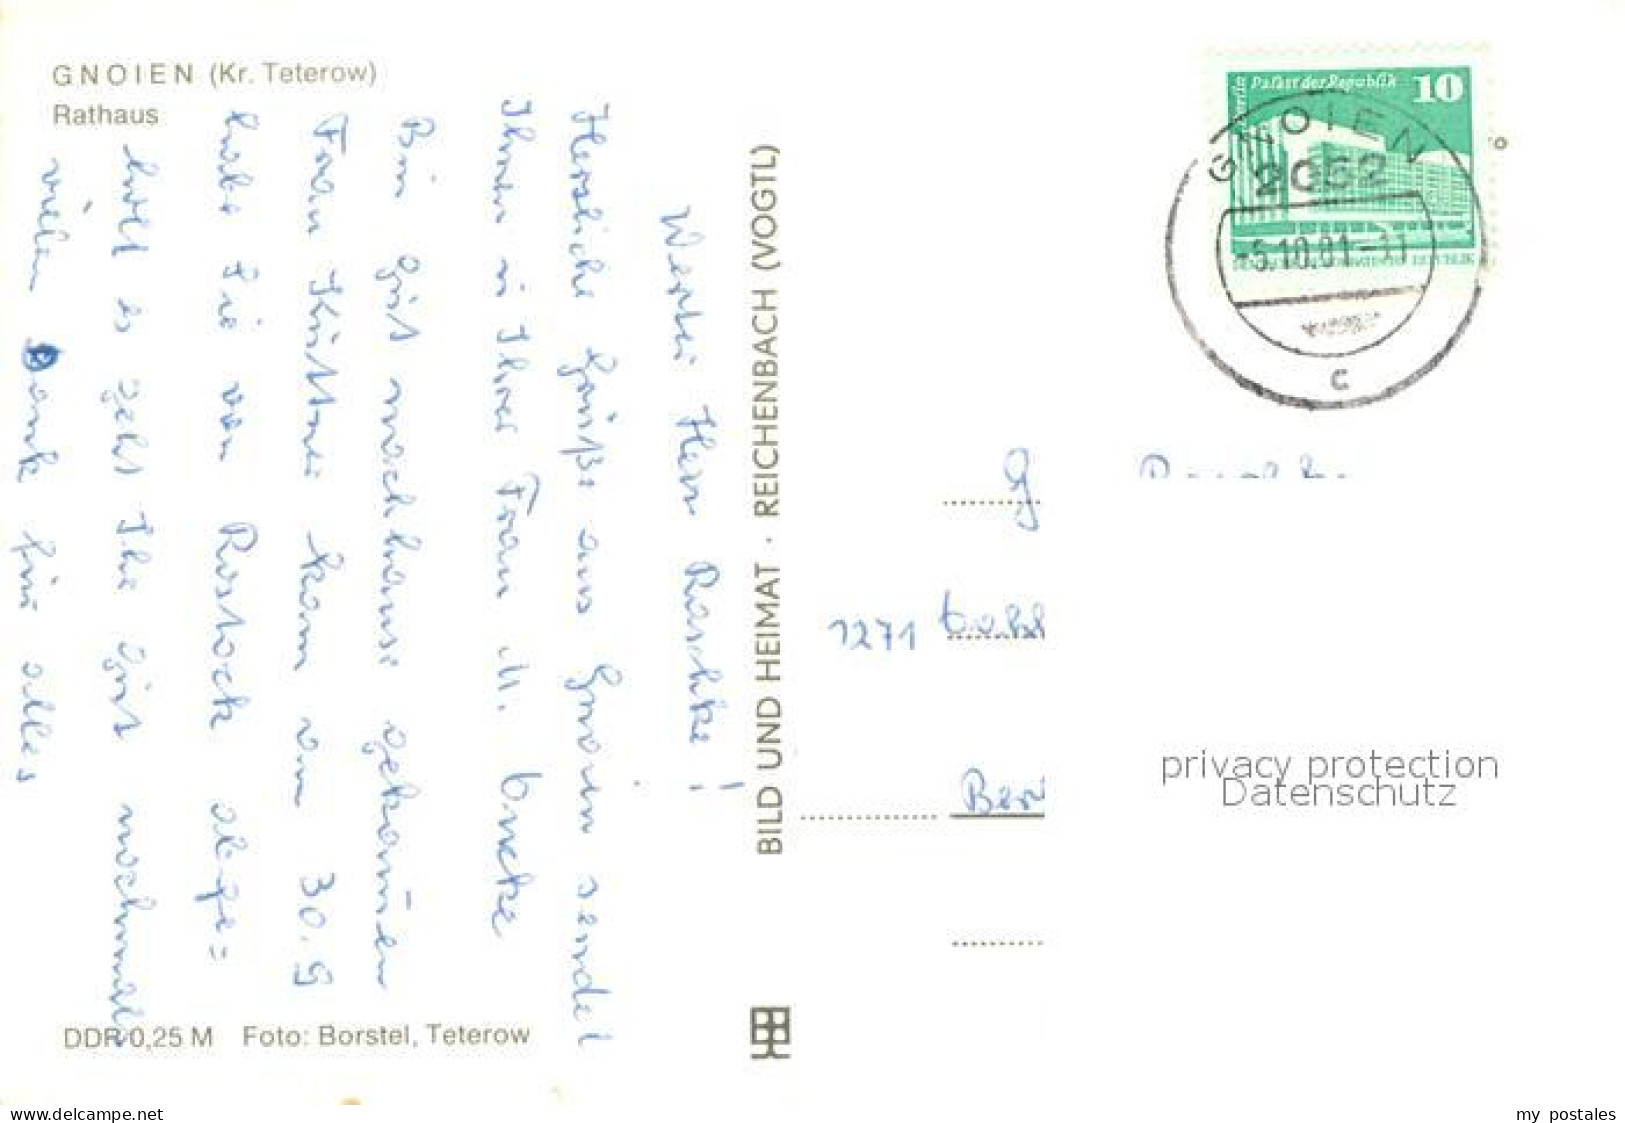 GNOIEN (Kr. Teterow)
Rathaus
Werter Herr Raschke!
Herzliche Grüße aus Gnoien sendet
Ihnen u Ihrer Frau M.
Bin gut nach hause gekom̄en
Frau Küttner kam am 30.9
habe Sie von Rostock abge=
holt es geht Ihr gut nochmals
vielen Dank für alles
DDR 0,25 M Foto: Borstel, Teterow
BILD UND HEIMAT · REICHENBACH (VOGTL)
Berlin Palast der Republik 10
GNOIEN
2052
-5.10.81-11
c
G
1271
privacy protection
Datenschutz
www.delcampe.net
my postales